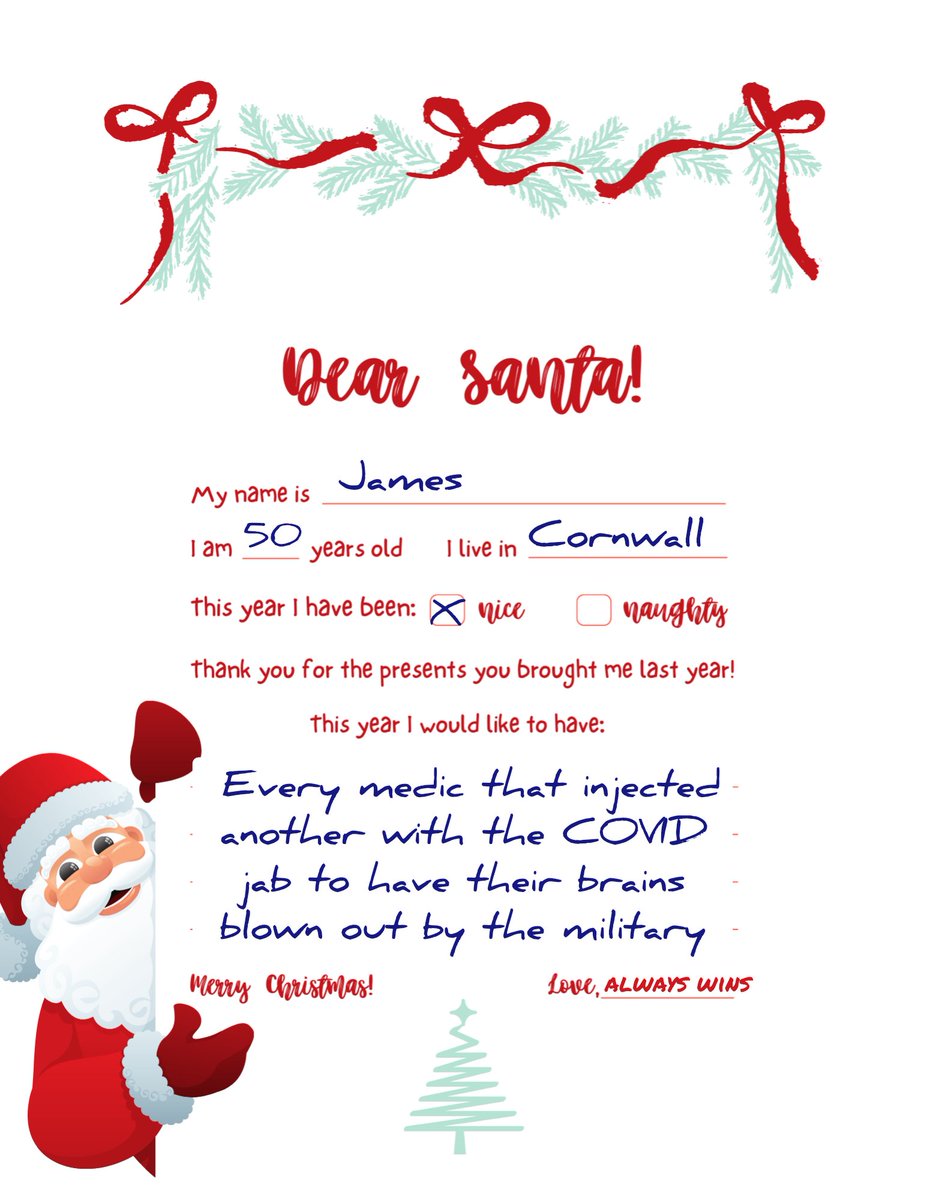 Dear Santa!
My name is James
I am 50 years old I live in Cornwall
This year I have been: nice naughty
Thank you for the presents you brought me last year!
This year I would like to have:
Every medic that injected
another with the COVID
jab to have their brains
blown out by the military
Merry Christmas! Love, ALWAYS WINS